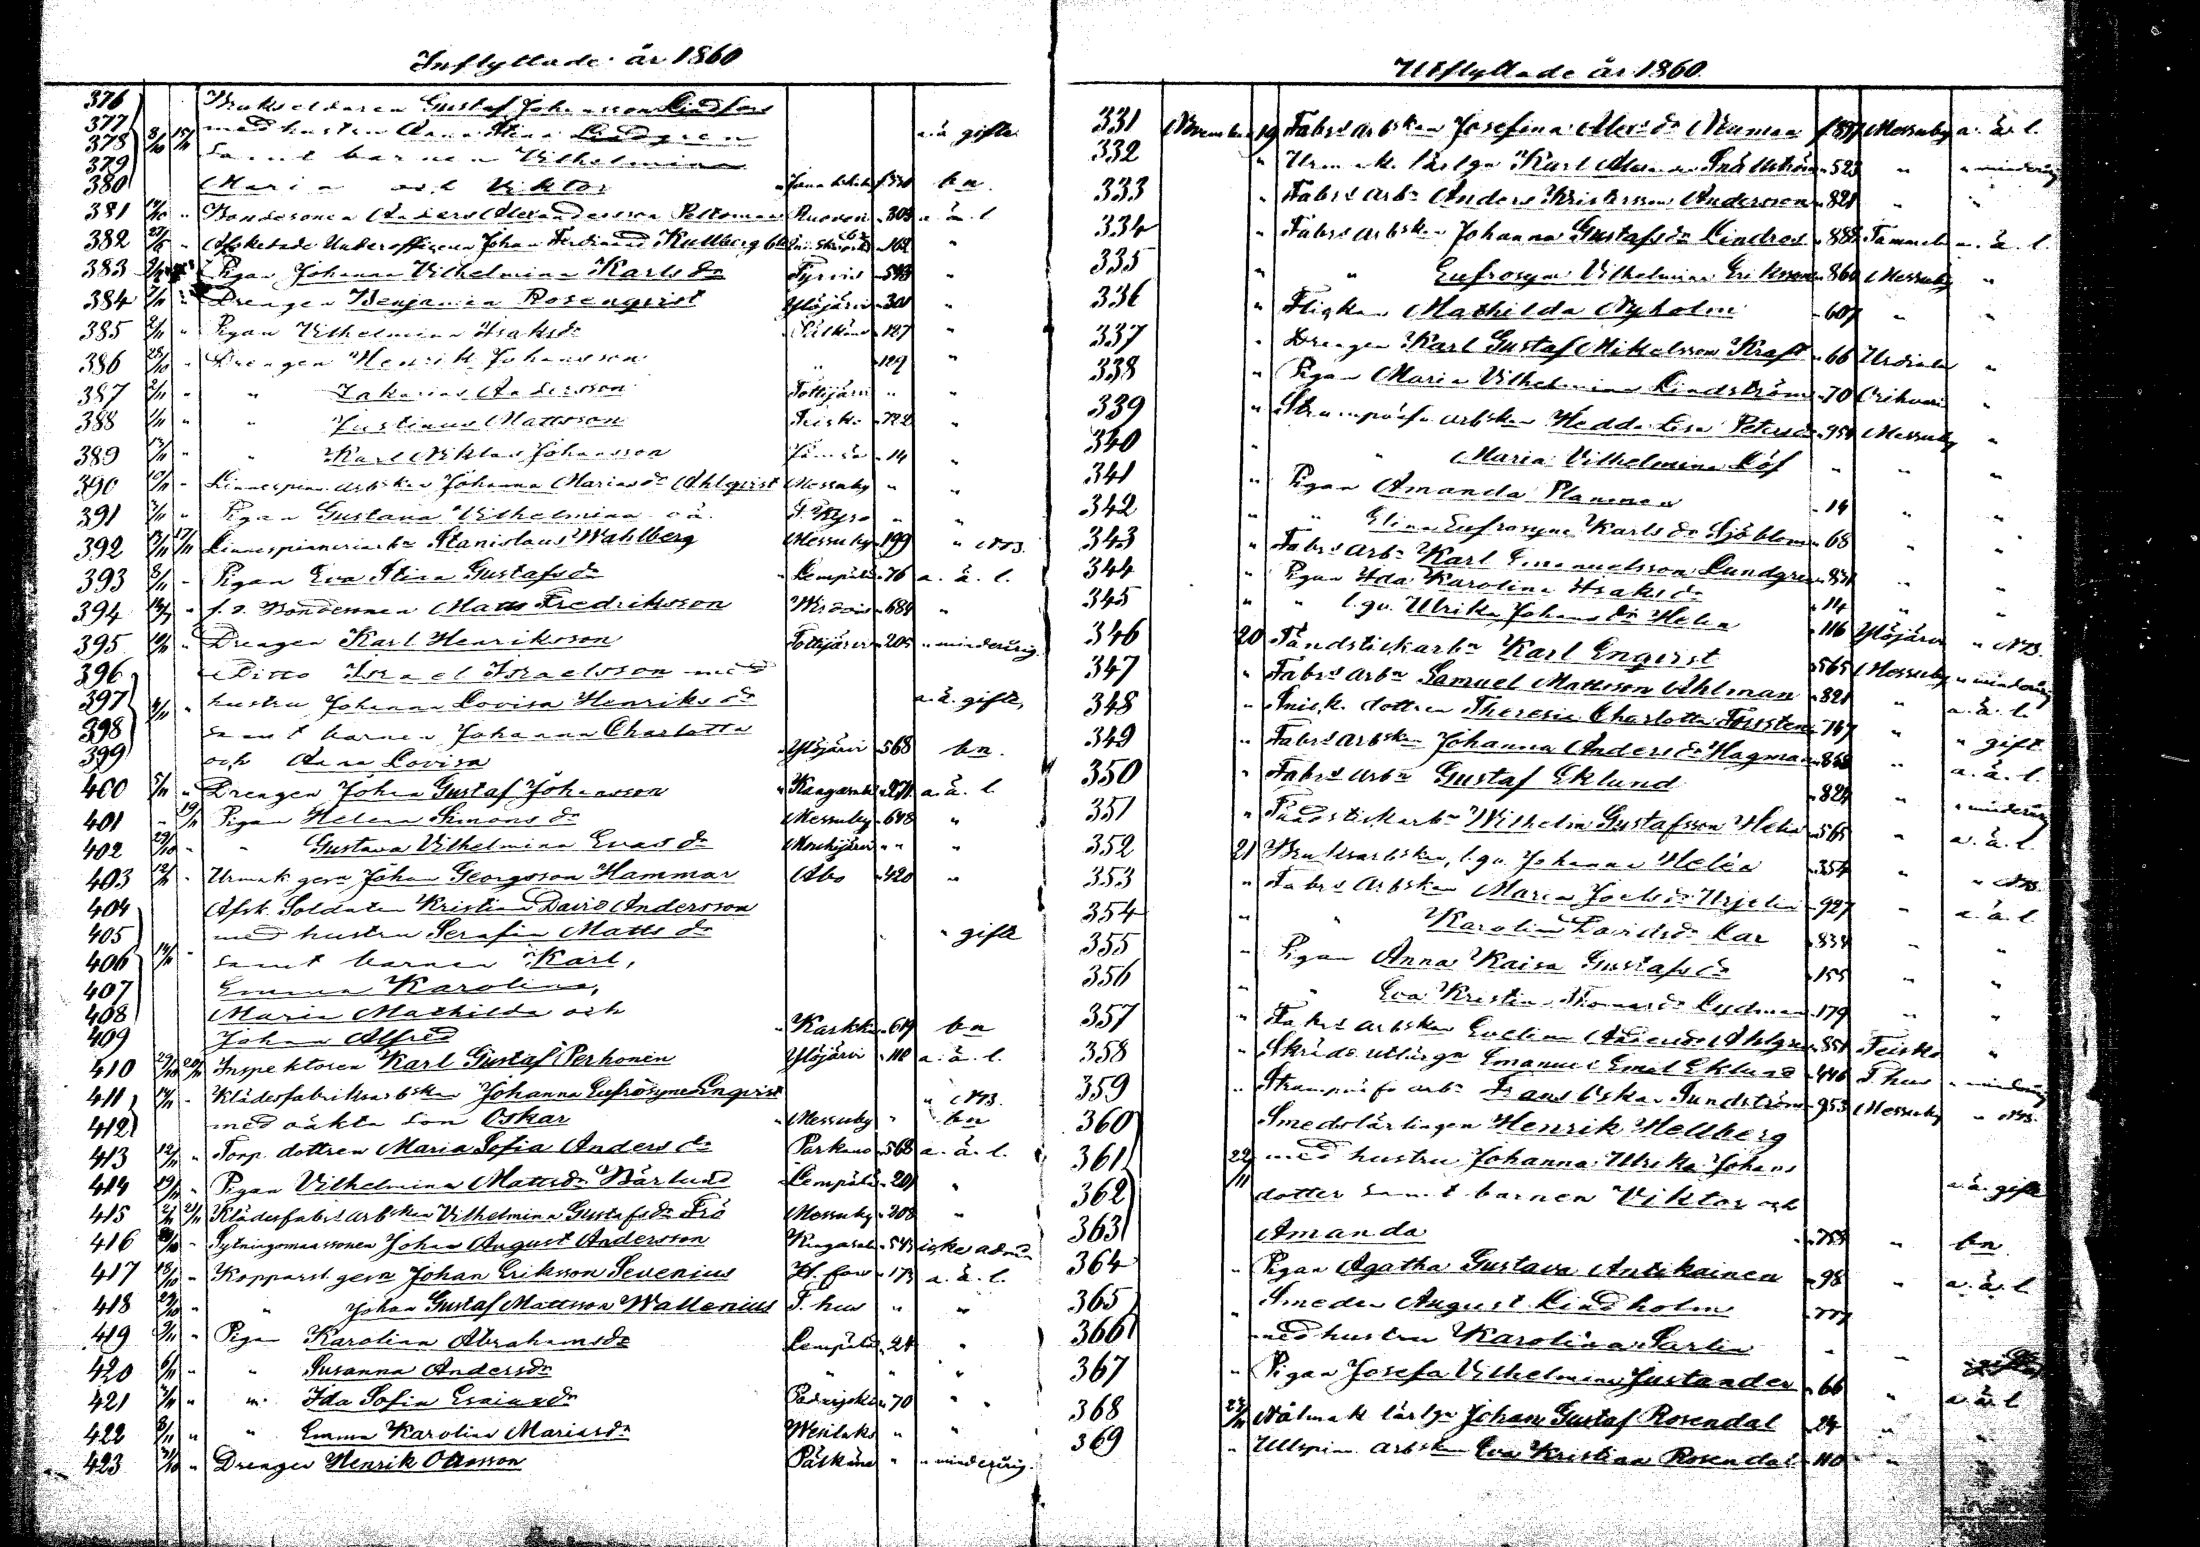 Inflyttade år 1860
376 Bruks eldaren Gustaf Johansson Lindfors
377 med hustru Anna Stina Lindgren a. ä. gifte
378 8/10 15/11 samt barnen Vilhelmina
379
380 Maria och Viktor f. 330 bn.
381 " Bondesonen Anders Alexandersson Peltoman Ruovesi " 303 a. ä. l.
382 " Afskedade Underofficeren Johan Ferdinand Kullberg " 162 "
383 Pigan Johanna Vilhelmina Karlsdr Tyrvis " 543 "
384 " Drengen Benjamin Rosenqvist Ylöjärvi " 301 "
385 2/11 " Pigan Vilhelmina Isaksdr Pälkäne " 127 "
386 " Drengen Henrik Johansson " " 129 "
387 2/11 " " Zakarias Andersson Tottijärvi " "
388 " " Justinus Mattsson Teisko " 122 "
389 " " Karl Niklas Johansson " 14 "
390 " Linnespinn. arbskan Johanna Mariasdr Ahlqvist Messuby " "
391 " Pigan Gustava Vilhelmina o.ä. T. Kyro " "
392 17/11 Linnespinneriarbn Stanislaus Wahlberg Messuby " 199 " NB.
393 8/11 " Pigan Eva Stina Gustafsdr " Lempälä " 76 a. ä. l.
394 " f. d. Bondesonen Matts Fredriksson Wirdois " 684 "
395 10/11 " Drengen Karl Henriksson Tottijärvi " 205 " minderårig.
396 Ditto Israel Israelsson med
397 " hustru Johanna Lovisa Henriksdr a. ä. gifte,
398 samt barnen Johanna Charlotta
399 och Anna Lovisa " Ylöjärvi " 568 bn.
400 5/11 " Drengen Johan Gustaf Johansson " Kangasala " 271 a. ä. l.
401 " 19/11 Pigan Helena Simonsdr Messuby " 648 "
402 29/10 " " Gustava Vilhelmina Evasdr Mouhijärvi " " "
403 12/11 " Urmak. gesn Johan Georgsson Hammar Åbo " 420 "
404 Afsk. Soldaten Kristian David Andersson
405 med hustru Serafia Mattsdr " gifte
406 14/11 " samt barnen Karl,
407 Emma Karolina,
408 Maria Mathilda och
409 Johan Alfred " Karkku " 619 bn
410 29/10 20/11 Inspektoren Karl Gustaf Perhonen Ylöjärvi " 112 a. ä. l.
411 " Klädesfabriksarbskan Johanna Eufrosyne Enqvist " NB.
412 med oäkta son Oskar " Messuby " bn
413 12/11 " Torp. dottren Maria Sofia Andersdr Parkano " 568 a. ä. l.
414 19/11 " Pigan Vilhelmina Mattsdr Bärlund Lempälä " 201 "
415 21/11 Klädesfabrs arbskan Vilhelmina Gustafsdr Frö Messuby " 308 "
416 " Sytningsmanssonen Johan August Andersson Kangasala " 543 icke adm.
417 " Kopparsl. gesn Johan Eriksson Sevenius H. fors " 173 a. ä. l.
418 29/10 " " Johan Gustaf Mattsson Wallenius T. hus " "
419 " Pigan Karolina Abrahamsdr Lempälä " 24 "
420 6/11 " " Susanna Andersdr " " "
421 " " Ida Sofia Esaiasdr Padasjoki " 70 "
422 8/11 " " Emma Karolina Mariasdr Wesilaks " "
423 " Drengen Henrik Ottosson Pälkäne " " minderårig.
Utflyttade år 1860.
331 Novemben 19 Fabrs arbskan Josefina Alexdr Neuman f. 897 Messuby a. ä. l.
332 " Urmak. lärlgn Karl Alexander " 523 " " minderårig
333 " Fabrs arbn Anders Kristersson Andersson " 821 " "
334 " Fabrs arbskan Johanna Gustafsdr Lindroos " 888 Tammela a. ä. l.
335 " " Eufrosyne Vilhelmina Eriksson " 860 Messuby "
336 " Flickan Mathilda Nyholm " 607 " "
337 " Drengen Karl Gustaf Mikelsson Kraft " 66 Urdiala "
338 " Pigan Maria Vilhelmina Lindström " 70 Orihvesi "
339 " Strumpväfn. arbskan Hedda Lisa Petersdr " 954 Messuby "
340 " " Maria Vilhelmina Löf " " "
341 " Pigan Amanda Planman " 14 " "
342 " " Elina Eufrosyne Karlsdr Sjöblom " 68 " "
343 " Fabrs arbn Karl Emanuelsson Lundgren " 831 " "
344 " Pigan Ida Karolina Isaksdr " 14 " "
345 " " l. qv. Ulrika Johansdr Helen " 116 Ylöjärvi " NB.
346 20 Tändstickarbn Karl Enqvist " 565 Messuby " minderårig
347 " Fabrs arbn Samuel Mattsson Ahlman " 821 " a. ä. l.
348 " Snick. dottren Theresia Charlotta " 747 " " gift
349 " Fabrs arbskan Johanna Andersdr Hagman " 858 " a. ä. l.
350 " Fabrs arbn Gustaf Eklund " 824 " " minderårig
351 " Tändstickarbn Wilhelm Gustafsson Helin " 565 " a. ä. l.
352 21 Bruksarbskan, l. qv. Johanna Helén " 354 " " NB.
353 " Fabrs arbskan Maria Joelsdr " 927 " a. ä. l.
354 " " Karolina Davidsdr " 838 " "
355 " Pigan Anna Kaisa Gustafsdr " 155 " "
356 " " Eva Kristina Thomasdr " 179 " "
357 " Fabrs arbskan Evelina Ahlgren " 851 Teisko "
358 " Skrädd. lärlgn Emanuel Emil Eklund " 446 T. hus " minderårig
359 " Strumpväfn. arbn Frans Oskar Sundström " 953 Messuby " NB.
360 Smedslärlingen Henrik Hellberg
361 22 med hustru Johanna Ulrika Johans
362 /11 dotter samt barnen Viktor och a. ä. gifte
363 Amanda " 755 " bn
364 " Pigan Agatha Gustava Antikainen " 98 " a. ä. l
365 " Smeden August Lindholm " 777
366 med hustru Karolina Sarlin " "
367 " Pigan Josefa Vilhelmina Justander " 66 " a. ä. l
368 23/11 Nålmak. lärlgn Johan Gustaf Rosendal " 24 " "
369 " Ullspinn. arbskan Eva Kristina Rosendal " 110 " "